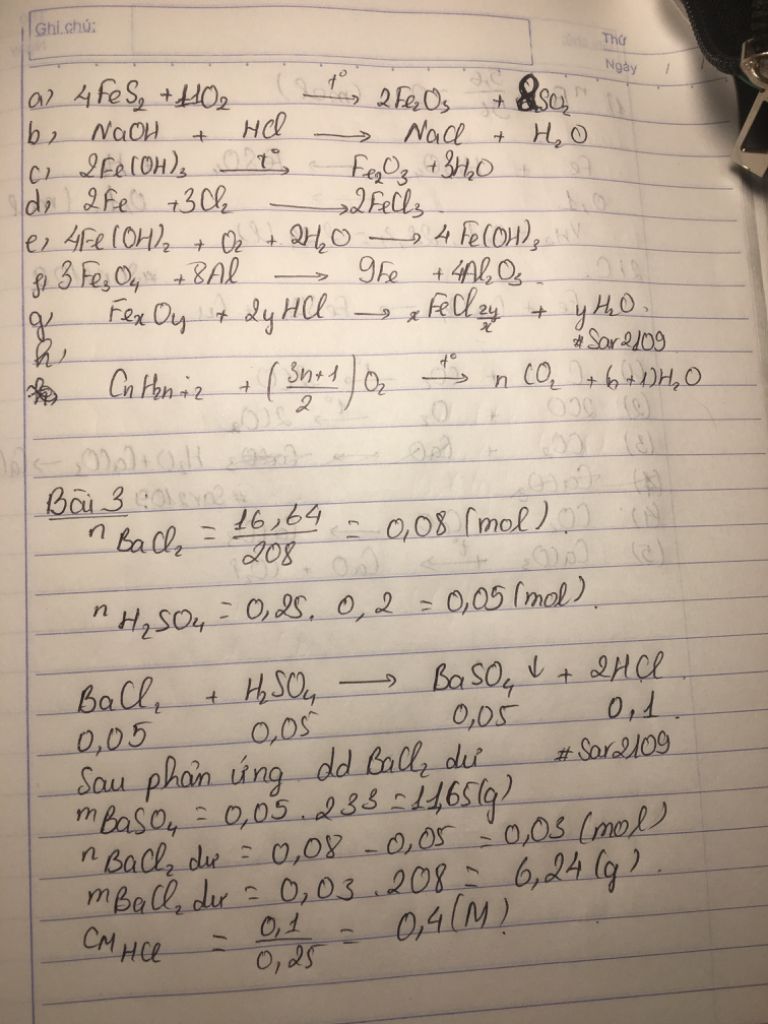 Ghi chú:
Thứ
Ngày / /
a, 4FeS₂ + 11O₂ —t°→ 2Fe₂O₃ + 8SO₂
b, NaOH + HCl → NaCl + H₂O
c, 2Fe(OH)₃ —t°→ Fe₂O₃ + 3H₂O
d, 2Fe + 3Cl₂ → 2FeCl₃
e, 4Fe(OH)₂ + O₂ + 2H₂O → 4Fe(OH)₃
f, 3Fe₃O₄ + 8Al → 9Fe + 4Al₂O₃.
g, FexOy + 2yHCl → xFeCl2y/x + yH₂O.
#Sar2109
h,
CnH2n+2 + (3n+1/2)O₂ —t°→ nCO₂ + (n+1)H₂O
Bài 3:
nBaCl₂ = 16,64/208 = 0,08 (mol).
nH₂SO₄ = 0,25. 0,2 = 0,05 (mol).
BaCl₂ + H₂SO₄ → BaSO₄↓ + 2HCl
0,05 0,05 0,05 0,1.
Sau phản ứng dd BaCl₂ dư #Sar2109
mBaSO₄ = 0,05.233 = 11,65(g)
nBaCl₂ dư = 0,08 - 0,05 = 0,03 (mol)
mBaCl₂ dư = 0,03.208 = 6,24(g).
CM HCl = 0,1/0,25 = 0,4(M)